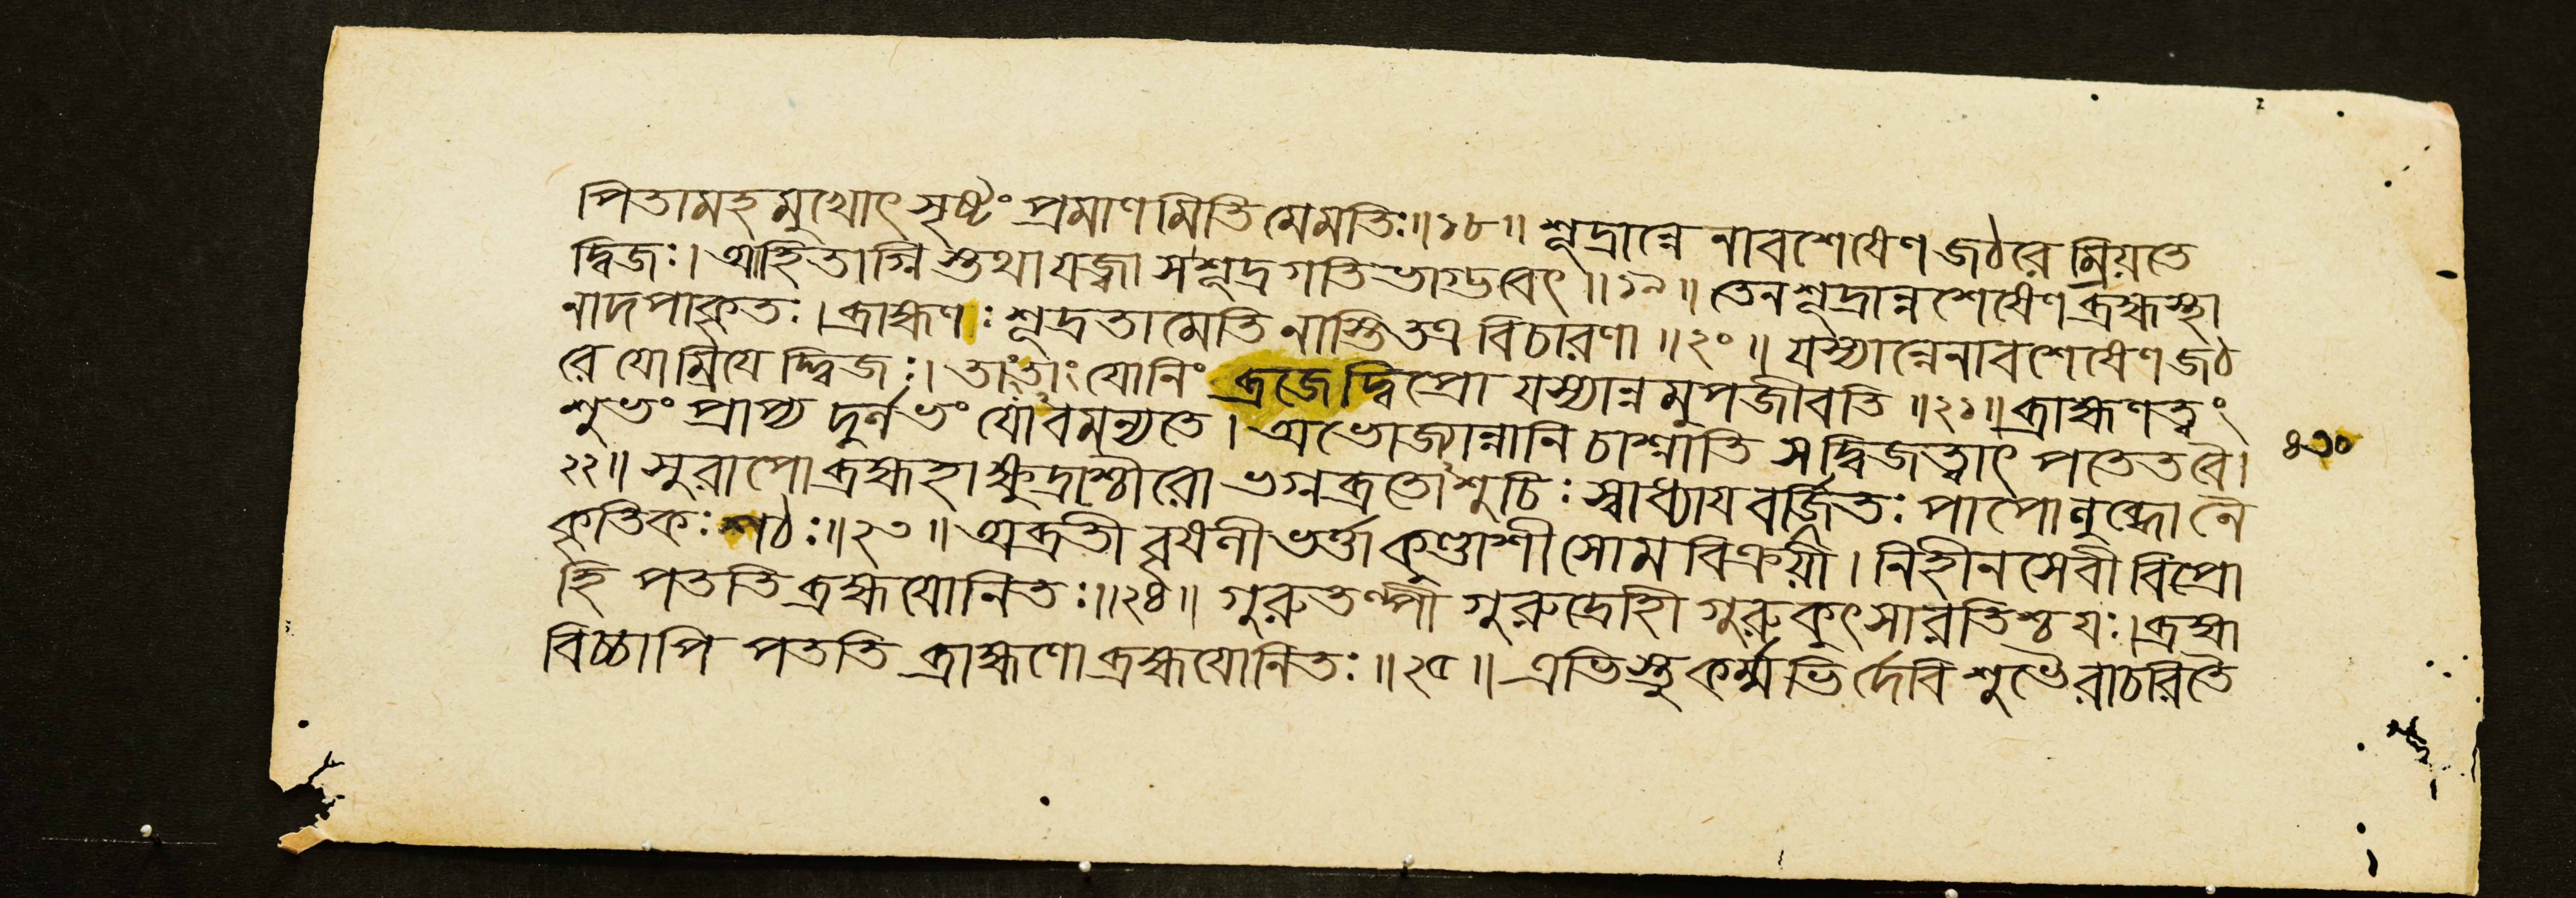 পিতামহমুখোৎসৃষ্টং প্রমাণমিতি মেমতিঃ॥১৮॥ শূদ্রান্নে নাবশেষেণ জঠরে ম্রিয়তে
দ্বিজঃ। আহিতাগ্নিস্তথা যজ্বা স শূদ্রগতিভাগ্ভবেৎ॥১৯॥ তেন শূদ্রান্নশেষেণ ব্রহ্মস্থা
নাদপাকৃতঃ। ব্রাহ্মণঃ শূদ্রতামেতি নাস্তি তত্র বিচারণা॥২০॥ যস্যান্নেনাবশেষেণ জঠ
রে যো ম্রিযেদ্দ্বিজঃ। তাং তাং যোনিং ব্রজেদ্বিপ্রো যস্যান্নমুপজীবতি॥২১॥ ব্রাহ্মণত্বং
শুভং প্রাপ্য দুর্লভং যোবমন্যতে। অভোজ্যান্নানি চাশ্নাতি স দ্বিজত্বাৎ পতেত বৈ।
৪৩০
২২॥ সুরাপো ব্রহ্মহা ক্ষুদ্রাশ্চৌরো ভগ্নব্রতোশুচিঃ স্বাধ্যাযবর্জিতঃ পাপো লুব্ধো নৈ
কৃতিকঃ শঠঃ॥২৩॥ অব্রতী বৃষলীভর্ত্তা কুণ্ডাশী সোমবিক্রয়ী। নিহীনসেবী বিপ্রো
হি পততি ব্রহ্মযোনিতঃ॥২৪॥ গুরুতল্পী গুরুদ্রোহী গুরুকুৎসারতিশ্চ যঃ। ব্রহ্ম
বিচ্চাপি পততি ব্রাহ্মণো ব্রহ্মযোনিতঃ॥২৫॥ এভিস্তু কর্ম্মভির্দেবি শুভৈরাচরিতৈ